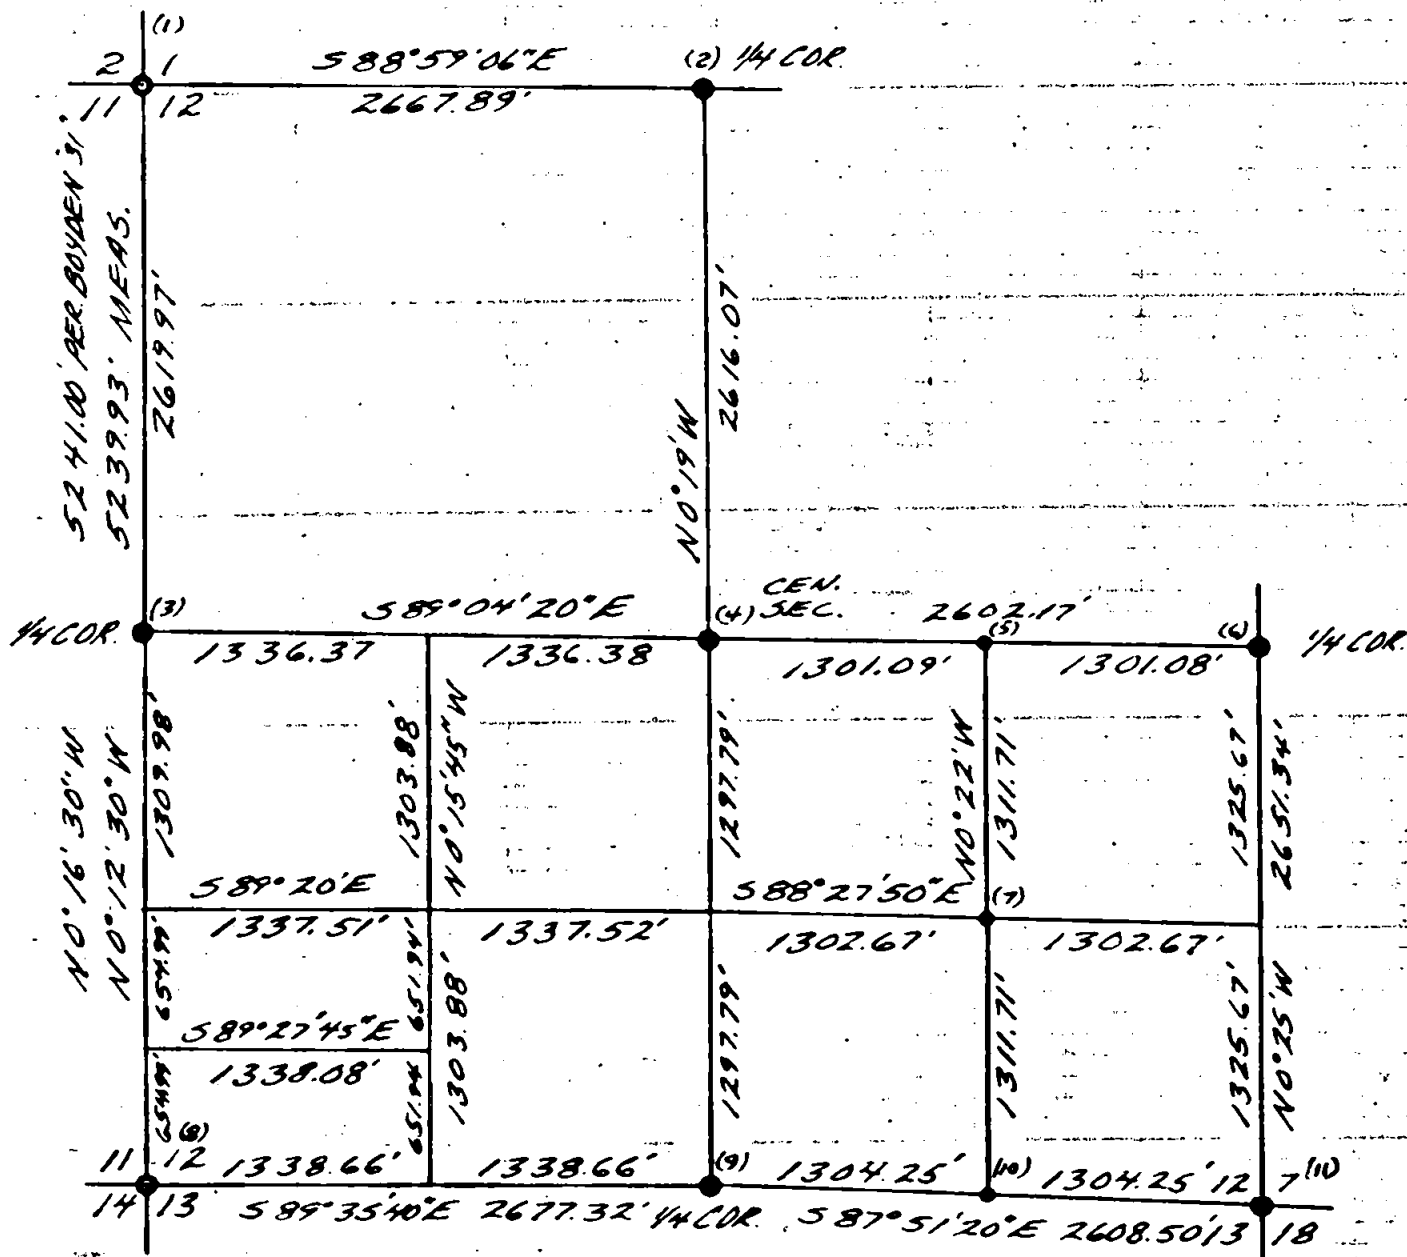 (1)
2 1
S 88°59'06"E
(2) 1/4 COR.
11 12
2667.89'
5241.00' PER. BOYDEN '31
5239.93' MEAS.
2619.97'
2616.07'
N0°19'W
(3)
S 89°04'20"E
(4) CEN. SEC.
2602.17'
(5)
(6)
1/4 COR.
1/4 COR.
1336.37
1336.38
1301.09'
1301.08'
N0°16'30"W
N0°12'30"W
1309.98'
1303.88'
N0°15'45"W
1297.79'
N0°22'W
1311.71'
1325.67'
2651.34'
S 89°20'E
S 88°27'50"E
(7)
1337.51'
1337.52'
1302.67'
1302.67'
654.99'
651.94'
1303.88'
1297.79'
1311.71'
1325.67'
N0°25'W
S 89°27'45"E
1338.08'
654.99'
651.94
(8)
11 12
1338.66'
1338.66'
(9)
1304.25'
(10)
1304.25'
12 7
(11)
14 13
S 89°35'40"E 2677.32' 1/4 COR.
S 87°51'20"E 2608.50'
13 18